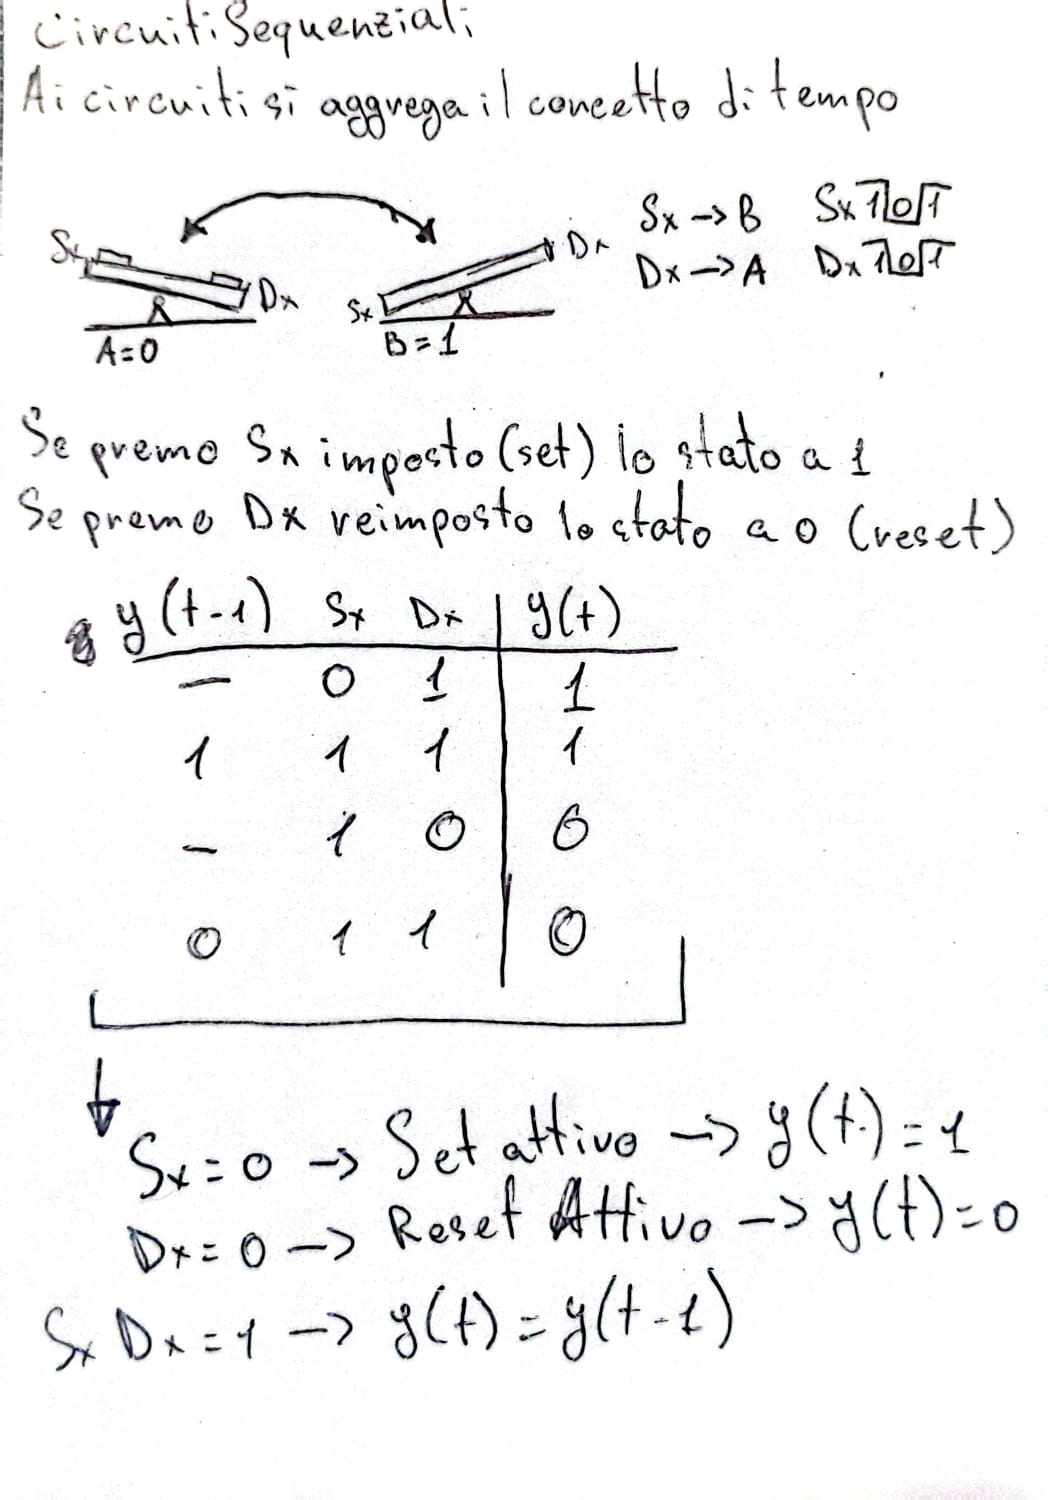 Circuiti Sequenziali
Ai circuiti si aggrega il concetto di tempo
Sx Dx A=0
Sx Dx B=1
Sx -> B Sx 1 0 1
Dx -> A Dx 1 0 1
Se premo Sx imposto (set) lo stato a 1
Se premo Dx reimposto lo stato a 0 (reset)
y(t-1) Sx Dx y(t)
— 0 1 1
1 1 1 1
— 1 0 0
0 1 1 0
Sx=0 -> Set attivo -> y(t)=1
Dx=0 -> Reset Attivo -> y(t)=0
Sx Dx=1 -> y(t)=y(t-1)